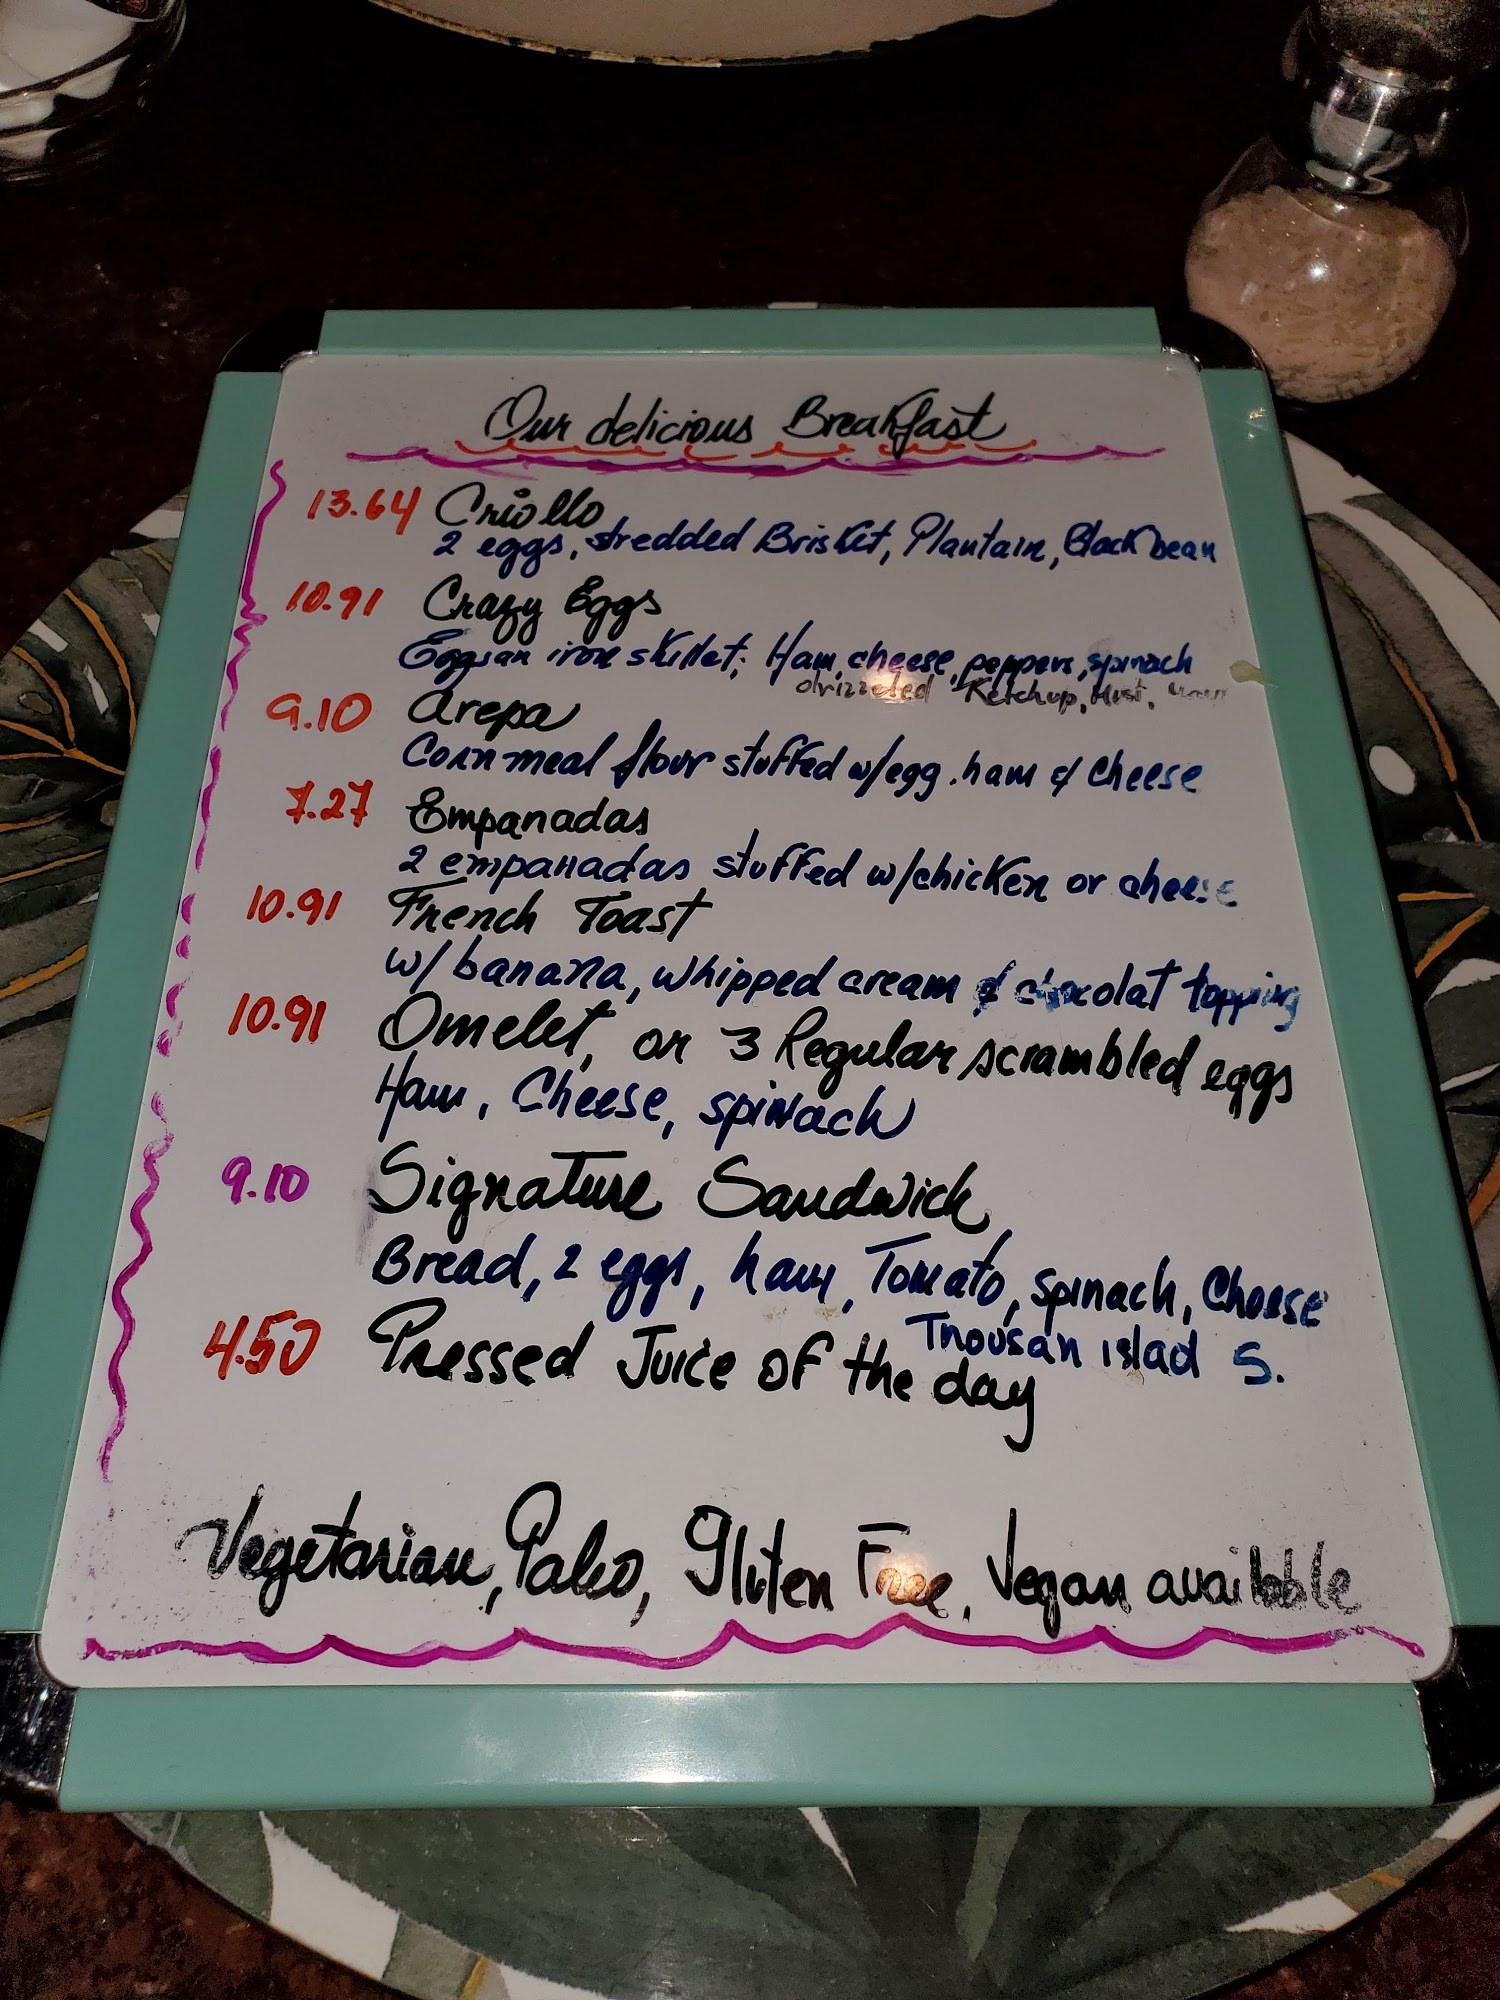 Our delicious Breakfast
13.64 Criollo
2 eggs, stredded Brisket, Plantain, Black bean
10.91 Crazy Eggs
Eggs an iron skillet; Ham, cheese, peppers, spinach
drizzeled Ketchup, Must, mayo
9.10 Arepa
Corn meal flour stuffed w/egg. ham & Cheese
7.27 Empanadas
2 empanadas stuffed w/chicken or cheese
10.91 French Toast
w/ banana, whipped cream & chocolat topping
10.91 Omelet, or 3 Regular scrambled eggs
Ham, Cheese, spinach
9.10 Signature Sandwick
Bread, 2 eggs, ham, Tomato, spinach, Cheese
Thousan islad S.
4.50 Pressed Juice of the day
Vegetarian, Paleo, Gluten Free, Vegan available